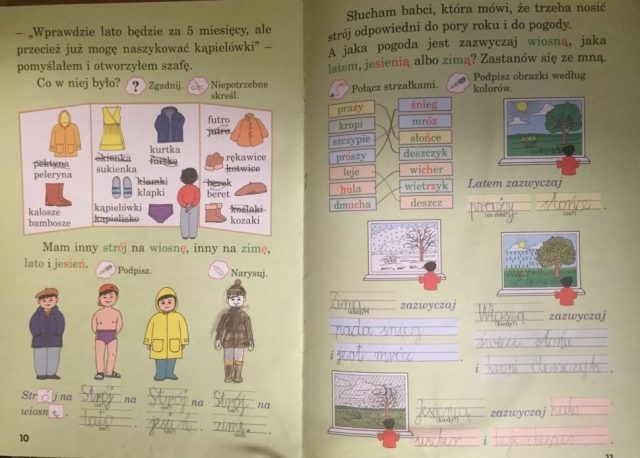 – „Wprawdzie lato będzie za 5 miesięcy, ale
przecież już mogę naszykować kąpielówki” –
pomyślałem i otworzyłem szafę.
Co w niej było? ? Zgadnij. Niepotrzebne
skreśl.
pektyna
peleryna
kalosze
bambosze
okienka
sukienka
kurtka
furtka
klamki
klapki
kąpielówki
kąpielisko
futro
jutro
rękawice
kotwice
berek
beret
koźlaki
kozaki
Mam inny strój na wiosnę, inny na zimę,
lato i jesień. Podpisz. Narysuj.
Strój na
wiosnę.
Strój na
lato.
Strój na
jesień.
Strój na
zimę.
(co?)
10
Słucham babci, która mówi, że trzeba nosić
strój odpowiedni do pory roku i do pogody.
A jaka pogoda jest zazwyczaj wiosną, jaka
latem, jesienią albo zimą? Zastanów się ze mną.
Połącz strzałkami. Podpisz obrazki według
kolorów.
praży śnieg
kropi mróz
szczypie słońce
prószy deszczyk
leje wicher
hula wietrzyk
dmucha deszcz
Latem zazwyczaj
praży słońce.
(co robi?) (co?)
Zimą zazwyczaj
(kiedy?)
pada śnieg
i jest mróz.
Wiosną zazwyczaj
(kiedy?)
świeci słońce
i kropi deszczyk.
Jesienią zazwyczaj hula
(kiedy?)
wicher i leje deszcz.
11